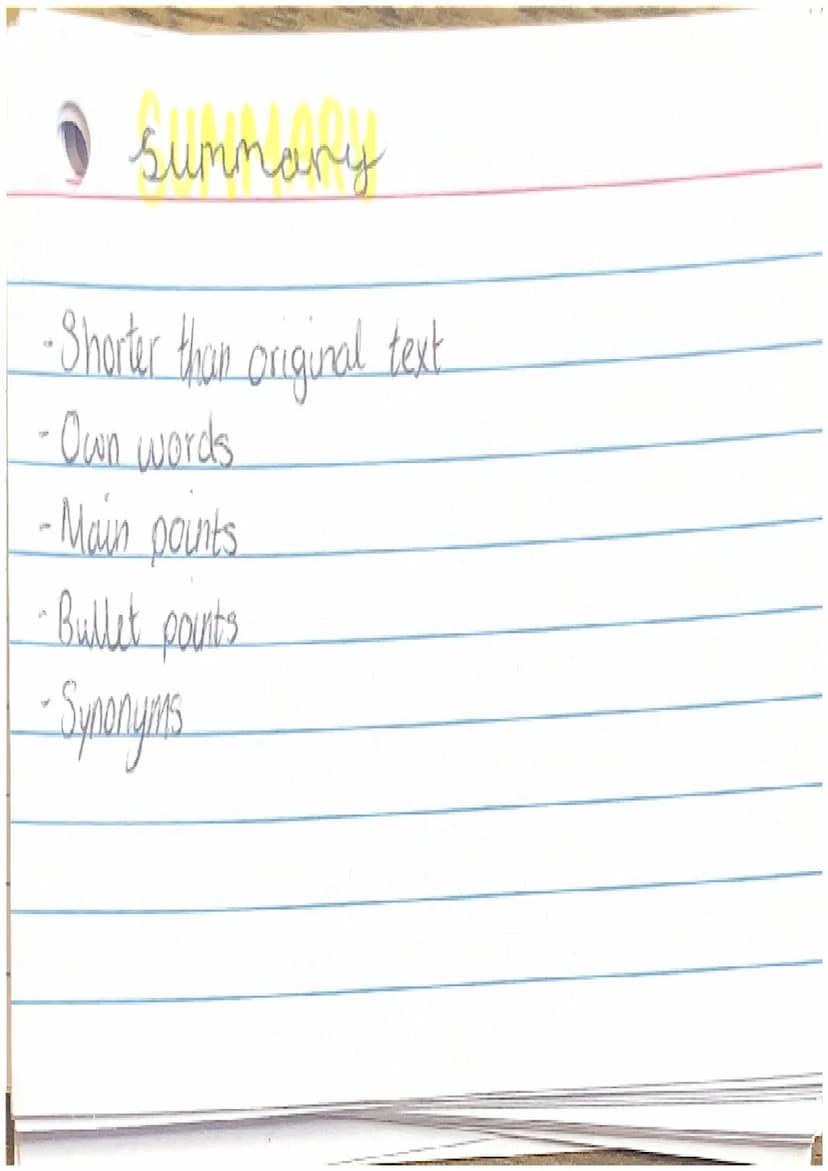 SUMMARY
summary
- Shorter than original text
- Own words
- Main points
- Bullet points
- Synonyms